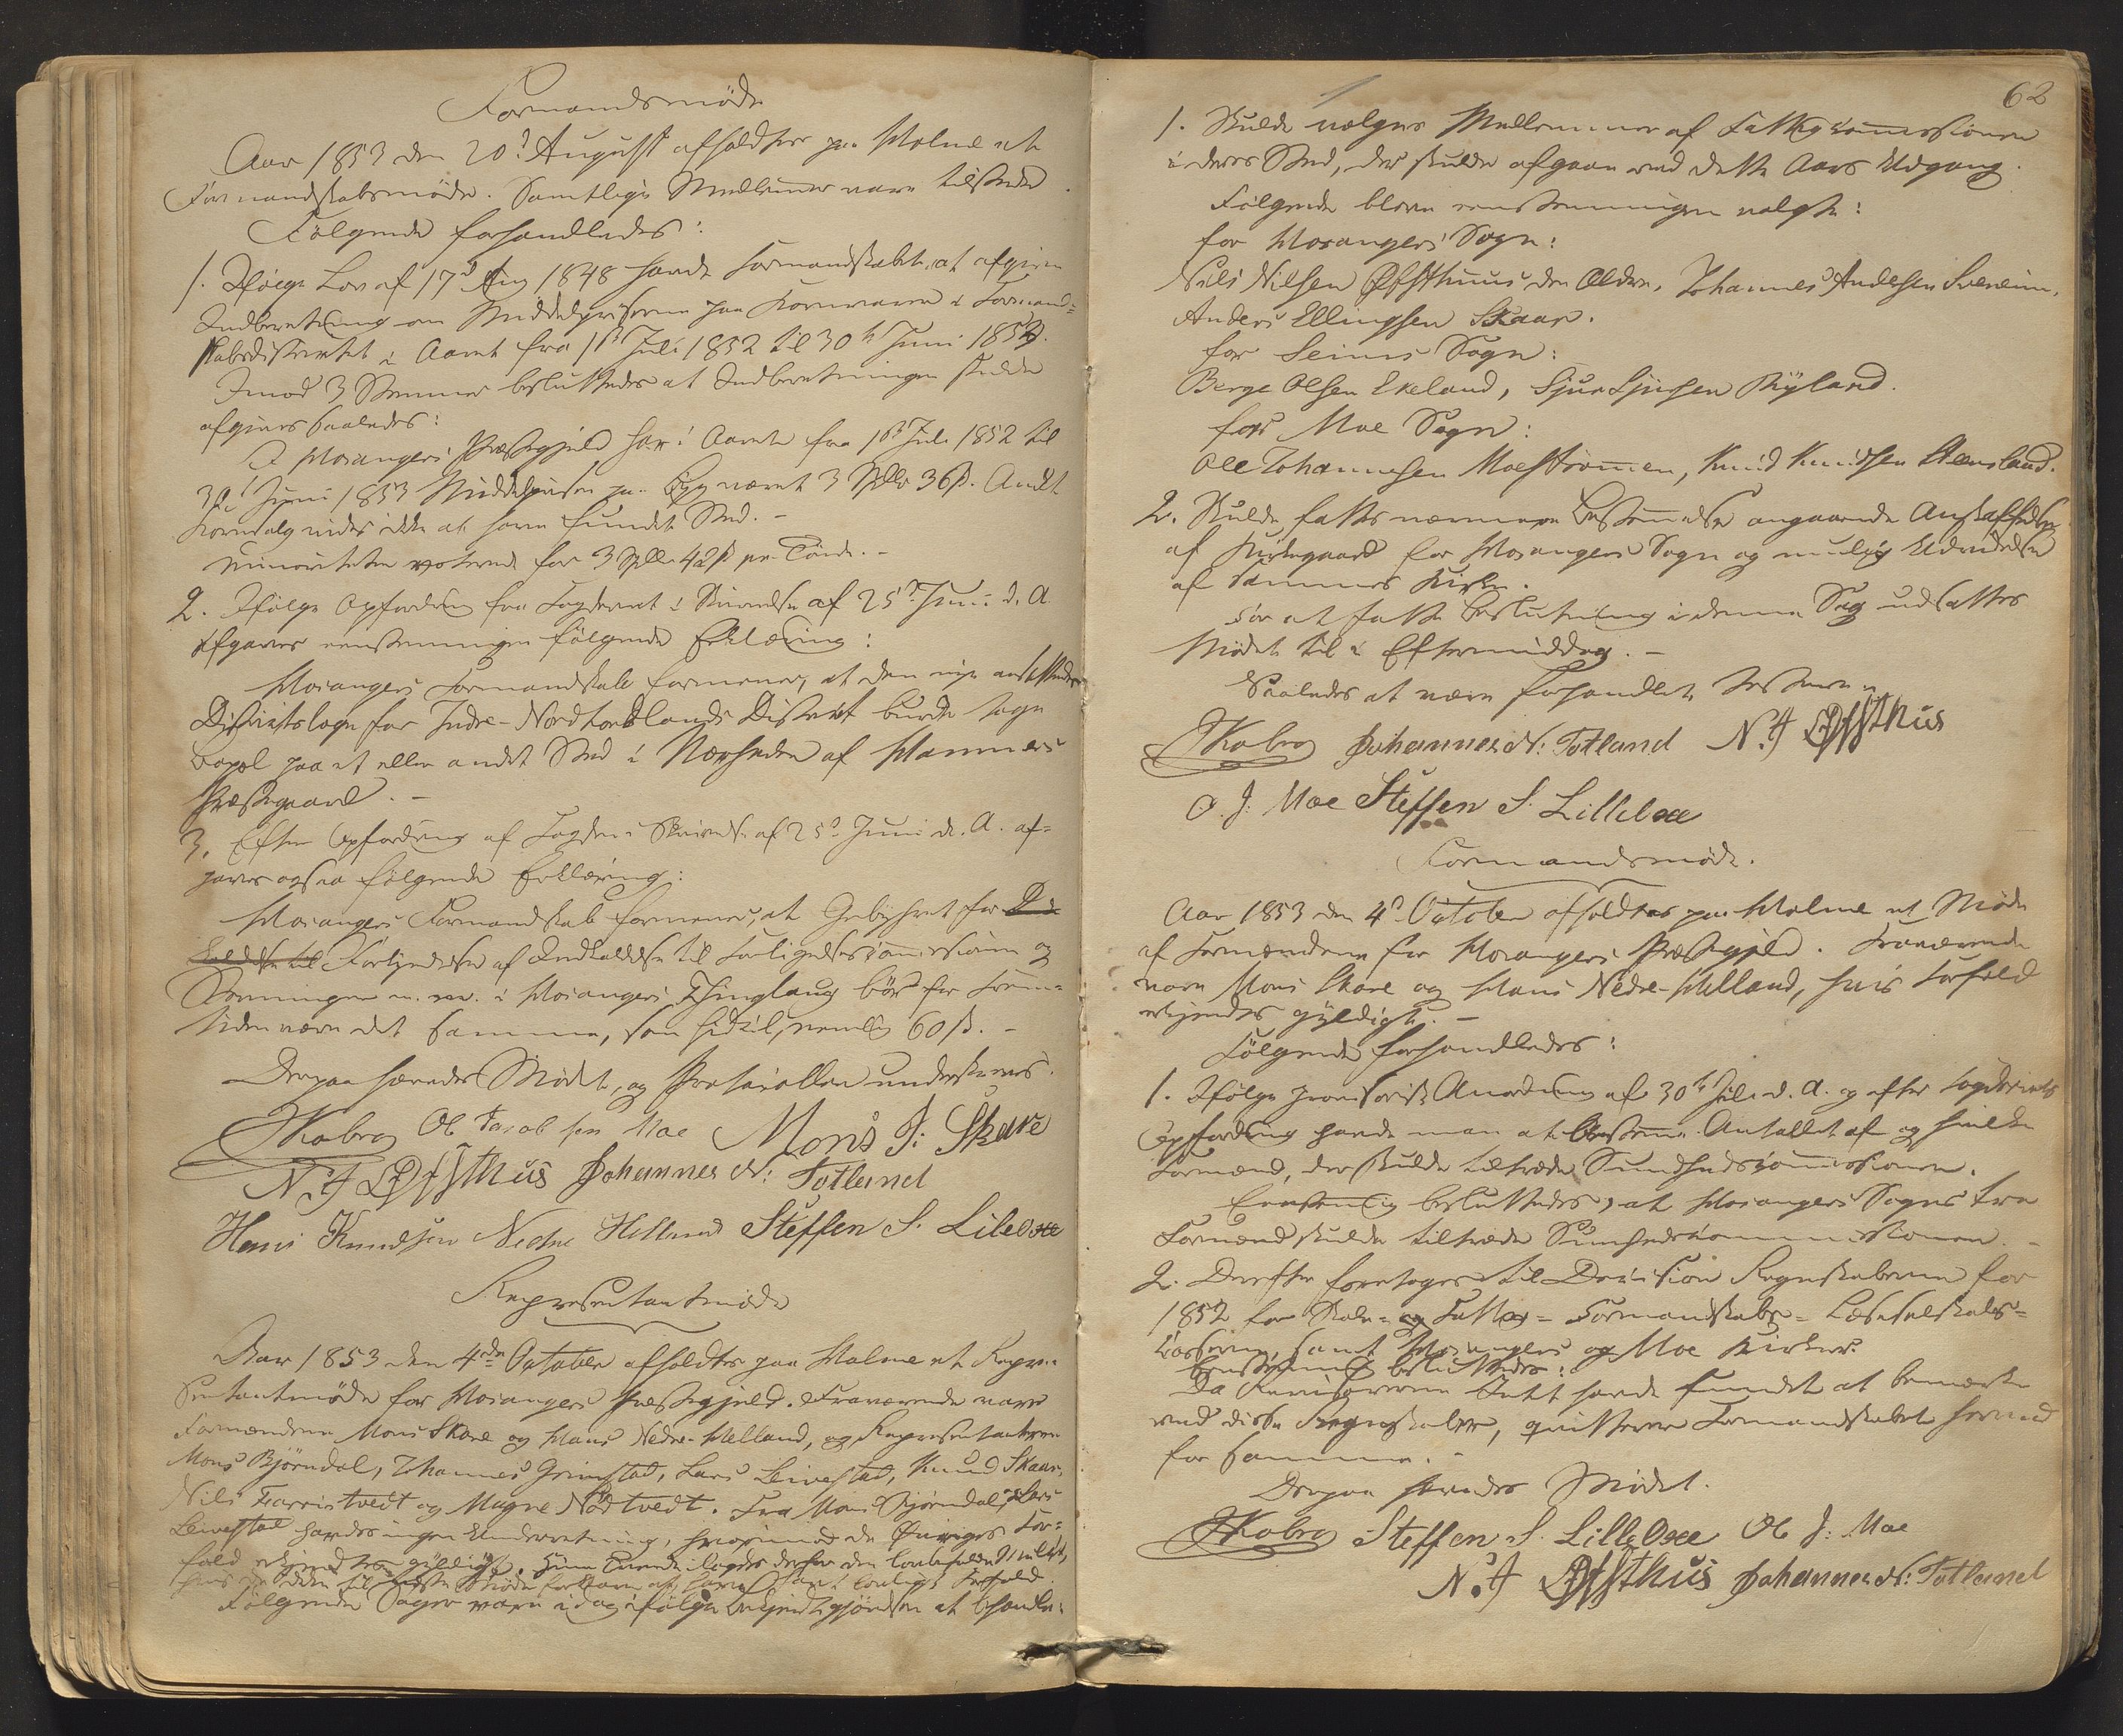 Formandsmøde
Aar 1853 den 20de August afholdtes paa Holme et
Formandskabsmøde. Samtlige Medlemmer vare tilstede.
Følgende forhandledes:
1. Ifølge Lov af 17d Aug 1848 havde Formandskabet at afgive
Indberetning om Middelpriserne paa Kornvarer i Formand-
skabsdistriktet i Aaret fra 1ste Juli 1852 til 30te Juni 1853.
Imod 3 Stemmer besluttedes at Indberetningen skulde
afgives saaledes:
I Hosangers Præstegjeld har i Aaret fra 1ste Juli 1852 til
30te Juni 1853 Middelprisen paa Byg været 3 Spdlr 36 ß. Andet
Kornsalg vides ikke at have fundet Sted. -
Minoriteten voterede for 3 Spdlr 42 ß pr. Tønde. -
2. Ifølge Opfordring fra Fogderiet i Skrivelse af 25de Juni d. A
afgaves eenstemmigen følgende Erklæring:
Hosangers Formandskab formener, at den nye ansættende
Districtslæge for Indre-Nordhordlands District burde tage
Bopæl paa et eller andet Sted i Nærheden af Hammers
Præstegaard. -
3. Efter Opfordring af Fogden i Skrivelse af 25de Juni d. A. af-
gaves ogsaa følgende Erklæring:
Hosangers Formandskab formener, at Gebyhret for
Forkyndelse af Indkaldelse til Forligelsescommissionen og
Stevninger m. m. i Hosangers Thinglaug bør for Frem-
tiden være det samme, som hidtil, nemlig 60 ß. -
Derpaa hævedes Mødet, og Protocollen underskreves.
Kobro Ole Jacobsen Moe Mons J: Skare
N. N Øfsthus Johannes N: Totland
Hans Knudsen Nedre Helland Steffen S. Lilleboe
Representantmøde
Aar 1853 den 4de October afholdtes paa Holme et Repræ-
sentantmøde for Hosangers Præstegjeld. Fraværende vare
Formændene Mons Skare og Hans Nedre-Helland, og Representanterne
Mons Bjørndal, Johannes Grimstad, Lars Leivestad, Knud Skaar,
Nils Farristvedt og Magne Nødtvedt. Fra Mons Bjørndal, Lars
Leivestad havdes ingen Underretning, hvorimod de Øvriges For-
fald erkjendtes gyldigt. Hine Tvende ilagdes derfor den lovbefalede Mulct,
hvis de ikke til næste Møde forklare at have havt lovligt Forfald.
Følgende Sager vare i dag ifølge Bekjendtgjørelsen at behandle:
62
1. Skulde vælges Medlemmer af Fattigcommissionen
i deres Sted, der skulde afgaae med dette Aars Udgang.
Følgende bleve eenstemmigen valgte:
for Hosangers Sogn:
Nils Nilsen Øfsthuus den Ældre, Johannes Andersen Soleim,
Anders Ellingsen Skaar.
for Seims Sogn:
Berge Olsen Ekeland, Sjur Sjursen Ryland.
for Moe Sogn:
Ole Johannesen Moestrømmen, Knud Knudsen Steensland.
2. Skulde fattes nærmere Bestemmelse angaaende Anskaffelse
af Kirkegaard for Hosangers Sogn og muligt Udvidelse
af sammes Kirke.
For at fatte Beslutning i denne Sag udsattes
Mødet til i Eftermiddag. -
Saaledes at være forhandlet testerer
Kobro Johannes N: Totland N. N Øfsthus
O. J: Moe Steffen S. Lilleboe
Formandsmøde.
Aar 1853 den 4de October afholdtes paa Holme et Møde
af Formændene for Hosangers Præstegjeld. Fraværende
vare Mons Skare og Hans Nedre-Helland, hvis Forfald
erkjendtes gyldigt. -
Følgende forhandledes:
1. Ifølge provisorisk Anordning af 30te Juli d. A. og efter Fogderiets
Opfordring havde man at bestemme Antallet af og hvilke
Formænd, der skulde tiltræde Sundhedscommissionen.
Eenstemmig besluttedes, at Hosangers Sogns tre
Formænd skulde tiltræde Sundhedscommissionen. -
2. Derefter foretoges til Decision Regnskaberne for
1852 for Skole- og Fattig- Formandskabs- Læseselskabs-
casserne, samt Hosangers og Moe Kirker.
Eenstemmig besluttedes:
Da Revisorerne Intet havde fundet at bemærke
ved disse Regnskaber, quitterer Formandskabet herved
for samme.
Derpaa hævedes Mødet.
Kobro Steffen S. Lilleboe Ole J: Moe
N. N Øfsthus Johannes N: Totland